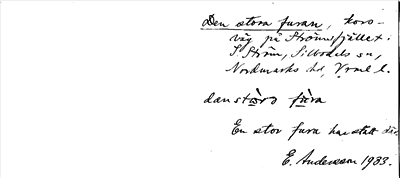 Den stora furan, kors-
väg på Strömsfjället.
S Ström, Silbodals sn,
Nordmarks hd, Vrml l.
dan stōrō fūra
En stor fura har stått där.
E. Andersson 1933.